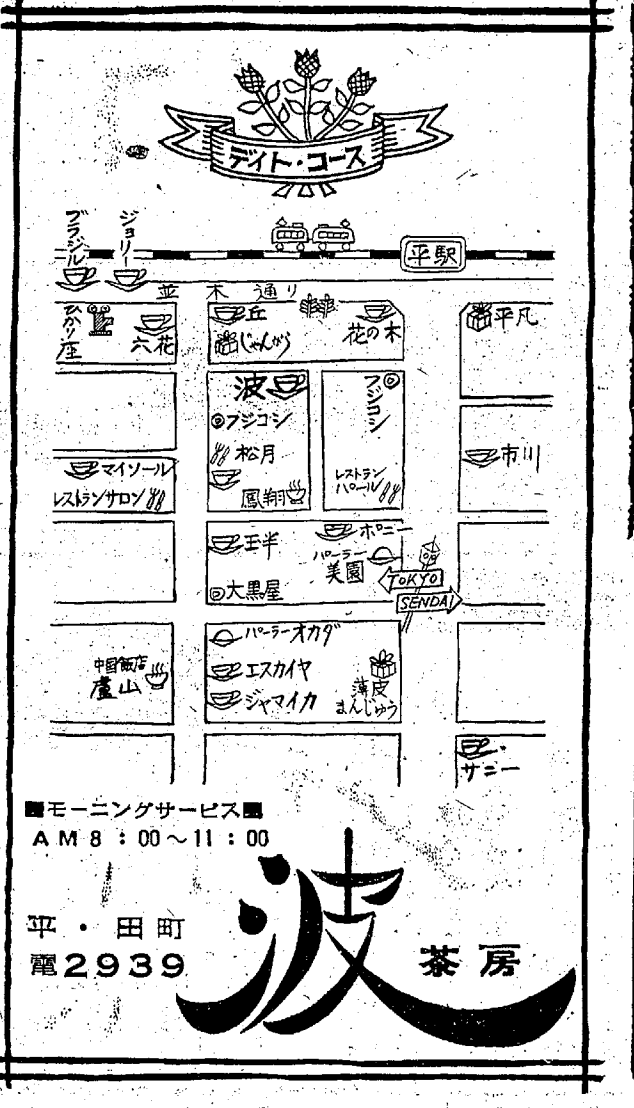 デイト・コース
ブラジル
ジョリー
平駅
並木通り
ひかり座
六花
丘
じゃんがら
花の木
平凡
波
フジコシ
松月
鳳翔
フジコシ
レストラン
パール
市川
マイソール
レストランサロン
玉半
大黒屋
ポニー
パーラー
美園
TOKYO
SENDAI
中国飯店
盧山
パーラーオカダ
エスカイヤ
ジャマイカ
薄皮
まんじゅう
サニー
モーニングサービス
AM8:00〜11:00
平・田町
電2939
波
茶房